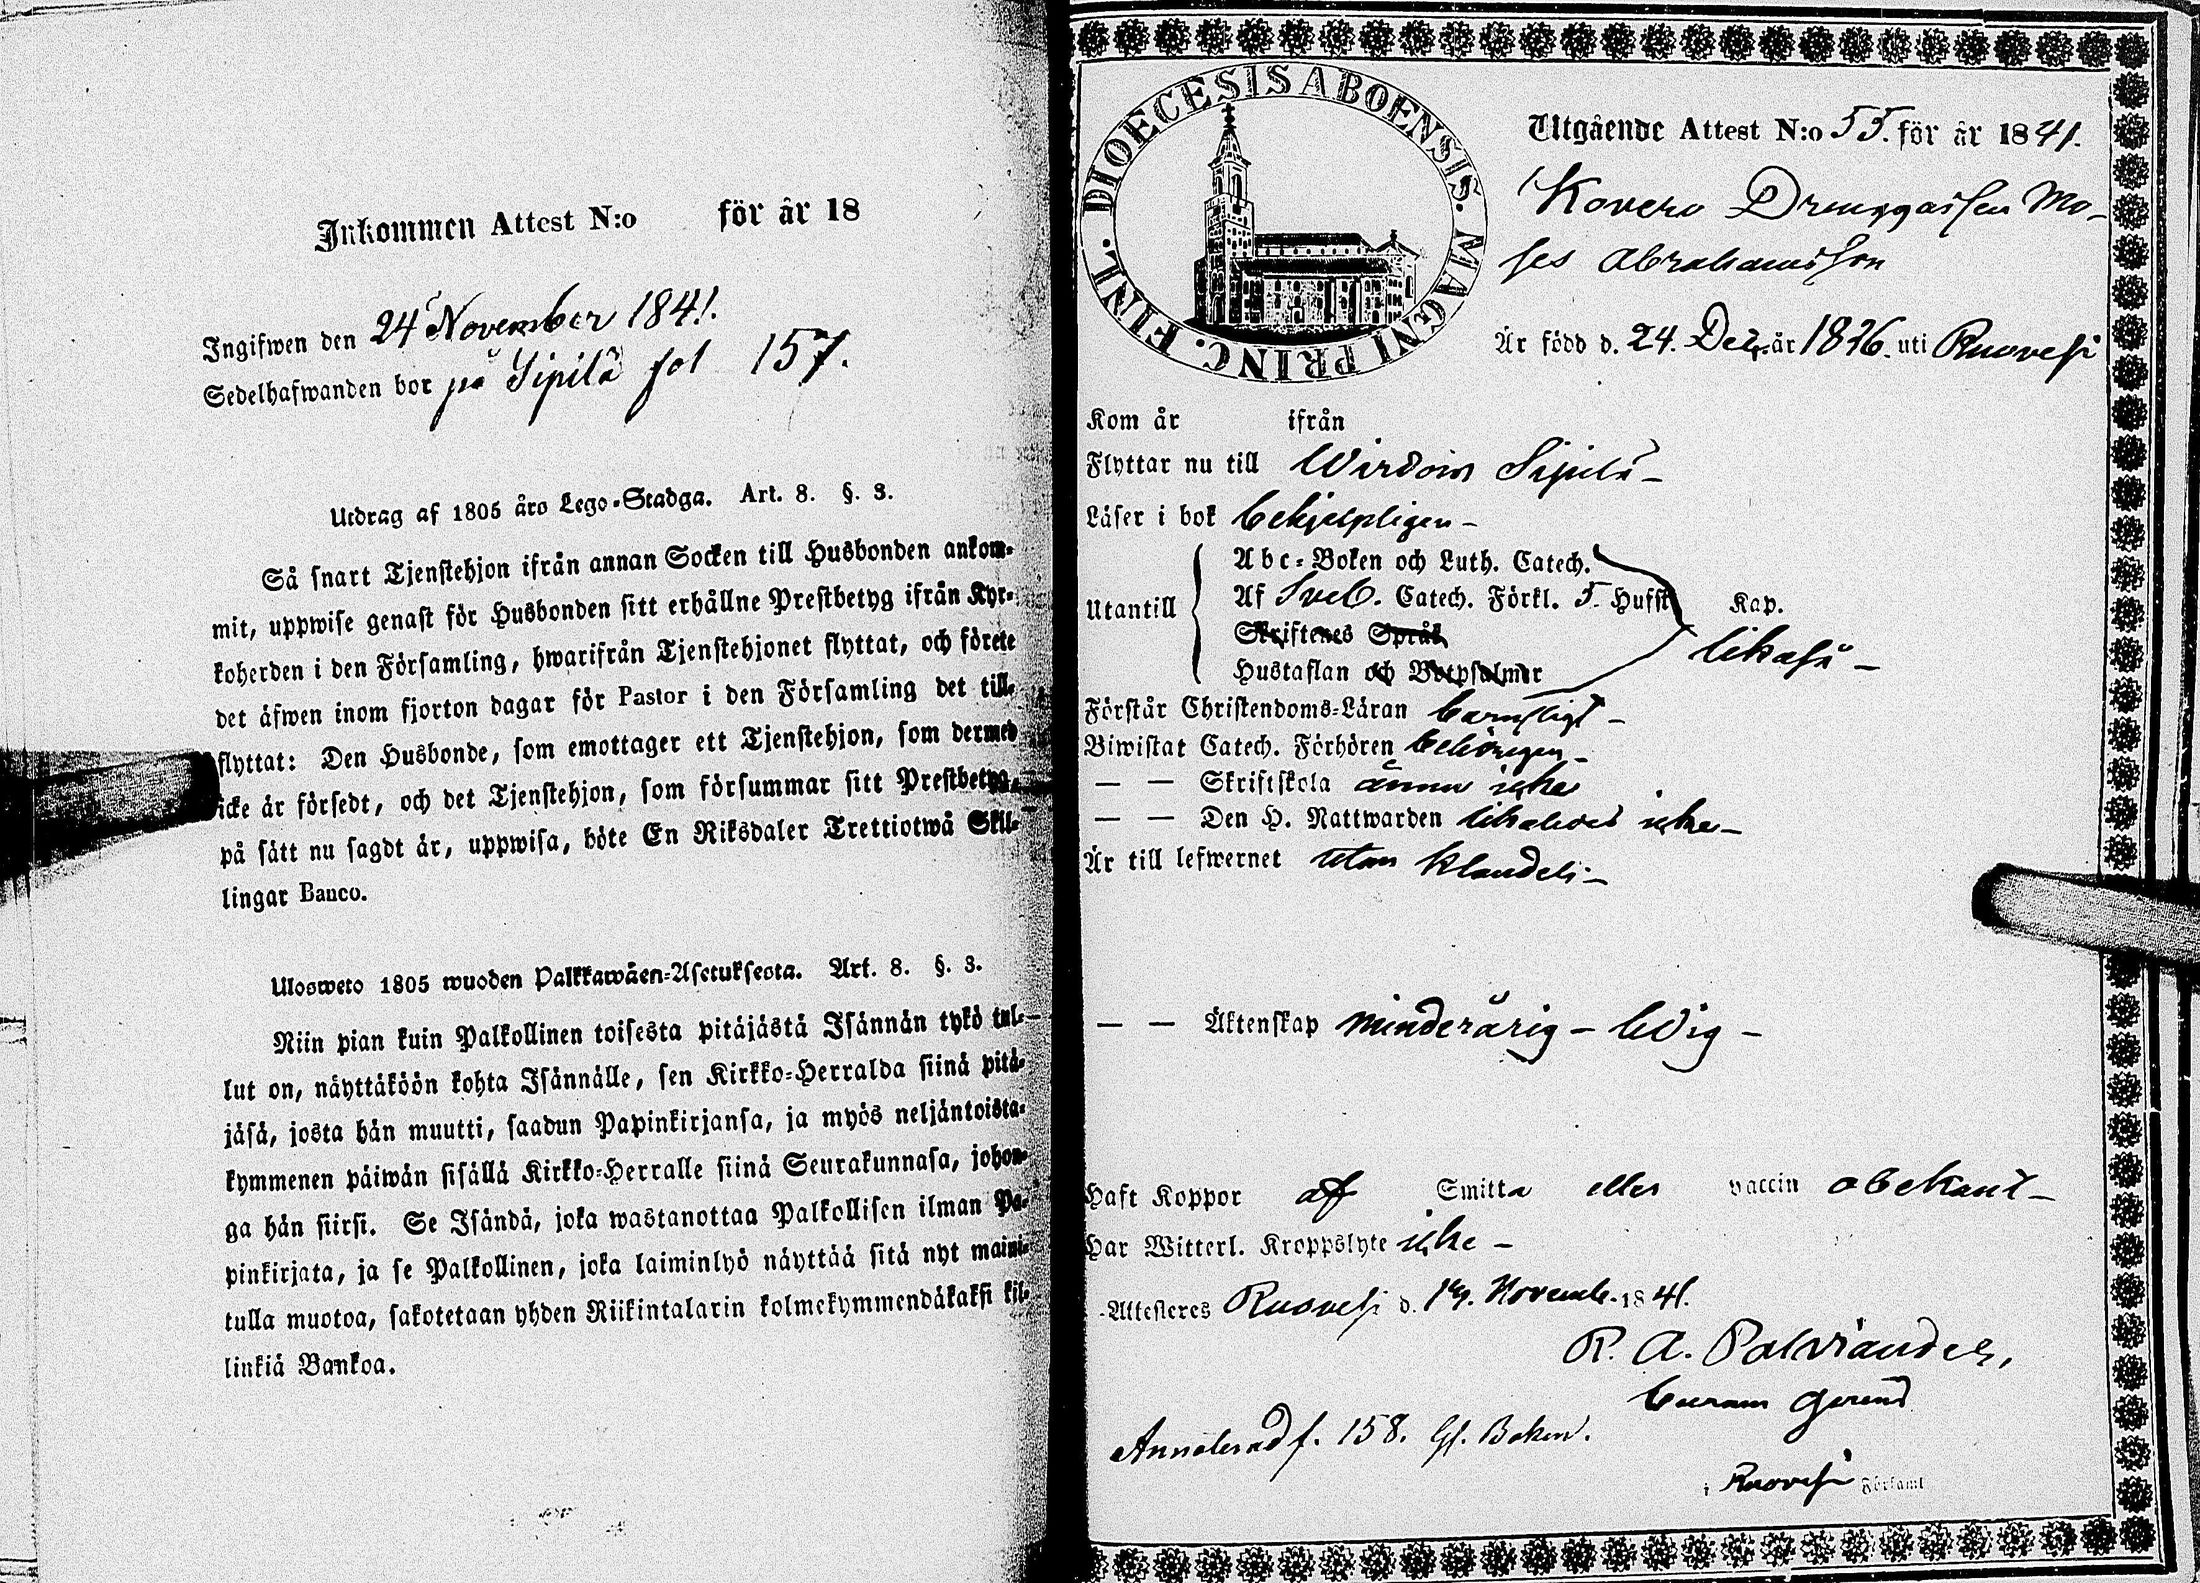 Inkommen Attest N:o för år 18
Ingifwen den 24 November 1841.
Sedelhafwanden bor på Sipilä fol 157.
Utdrag af 1805 års Lego-Stadga. Art. 8. §. 3.
Så snart Tjenstehjon ifrån annan Socken till Husbonden ankom-
mit, uppwise genast för Husbonden sitt erhållne Prestbetyg ifrån Kyr-
koherden i den Församling, hwarifrån Tjenstehjonet flyttat, och förete
det äfwen inom fjorton dagar för Pastor i den Församling det till-
flyttat: Den Husbonde, som emottager ett Tjenstehjon, som dermed
icke är försedt, och det Tjenstehjon, som försummar sitt Prestbetyg,
på sätt nu sagdt är, uppwisa, böte En Riksdaler Trettiotwå Skil-
lingar Banco.
Ulosweto 1805 wuoden Palkkawäen-Asetuksesta. Art. 8. §. 3.
Niin pian kuin Palkollinen toisesta pitäjästä Isännän tykö tul-
lut on, näyttäköön kohta Isännälle, sen Kirkko-Herralda siinä pitä-
jäsä, josta hän muutti, saadun Papinkirjansa, ja myös neljäntoista-
kymmenen päiwän sisällä Kirkko-Herralle siinä Seurakunnasa, johon-
ga hän siirsi. Se Isändä, joka wastanottaa Palkollisen ilman Pa-
pinkirjata, ja se Palkollinen, joka laiminlyö näyttää sitä nyt maini-
tulla muotoa, sakotetaan yhden Riikintalarin kolmekymmendäkaksi kil-
linkiä Bankoa.
DIOECESIS ABOENSIS. MAGNI PRINC. FINL.
Utgående Attest N:o 55. för år 1841.
Kovero Drenggossen Mo-
ses Abrahamsson
Är född d. 24. Dec. år 1826. uti Ruovesi
Kom år ifrån
Flyttar nu till Wirdois Sipilä -
Läser i bok behjelpligen -
Abc-Boken och Luth. Catech.
Utantill Af Sveb. Catech. Förkl. 5. Hufst Kap.
Skriftenes Språk likaså -
Hustaflan och Botpsalmer
Förstår Christendoms-Läran barnsligt -
Biwistat Catech. Förhören behörigen -
— — Skriftskola ännu icke
— — Den H. Nattwarden likaledes icke -
Är till lefwernet utan klandel: -
— — Äktenskap minderårig - ledig -
Haft Koppor af Smitta eller vaccin obekant -
Har Witterl. Kroppslyte icke -
Attesteres Ruovesi d. 19. Novemb. 1841.
R. A. Palviander,
Curam gerens
Annoterad f. 158. Gl. Boken.
i Ruovesi Församl